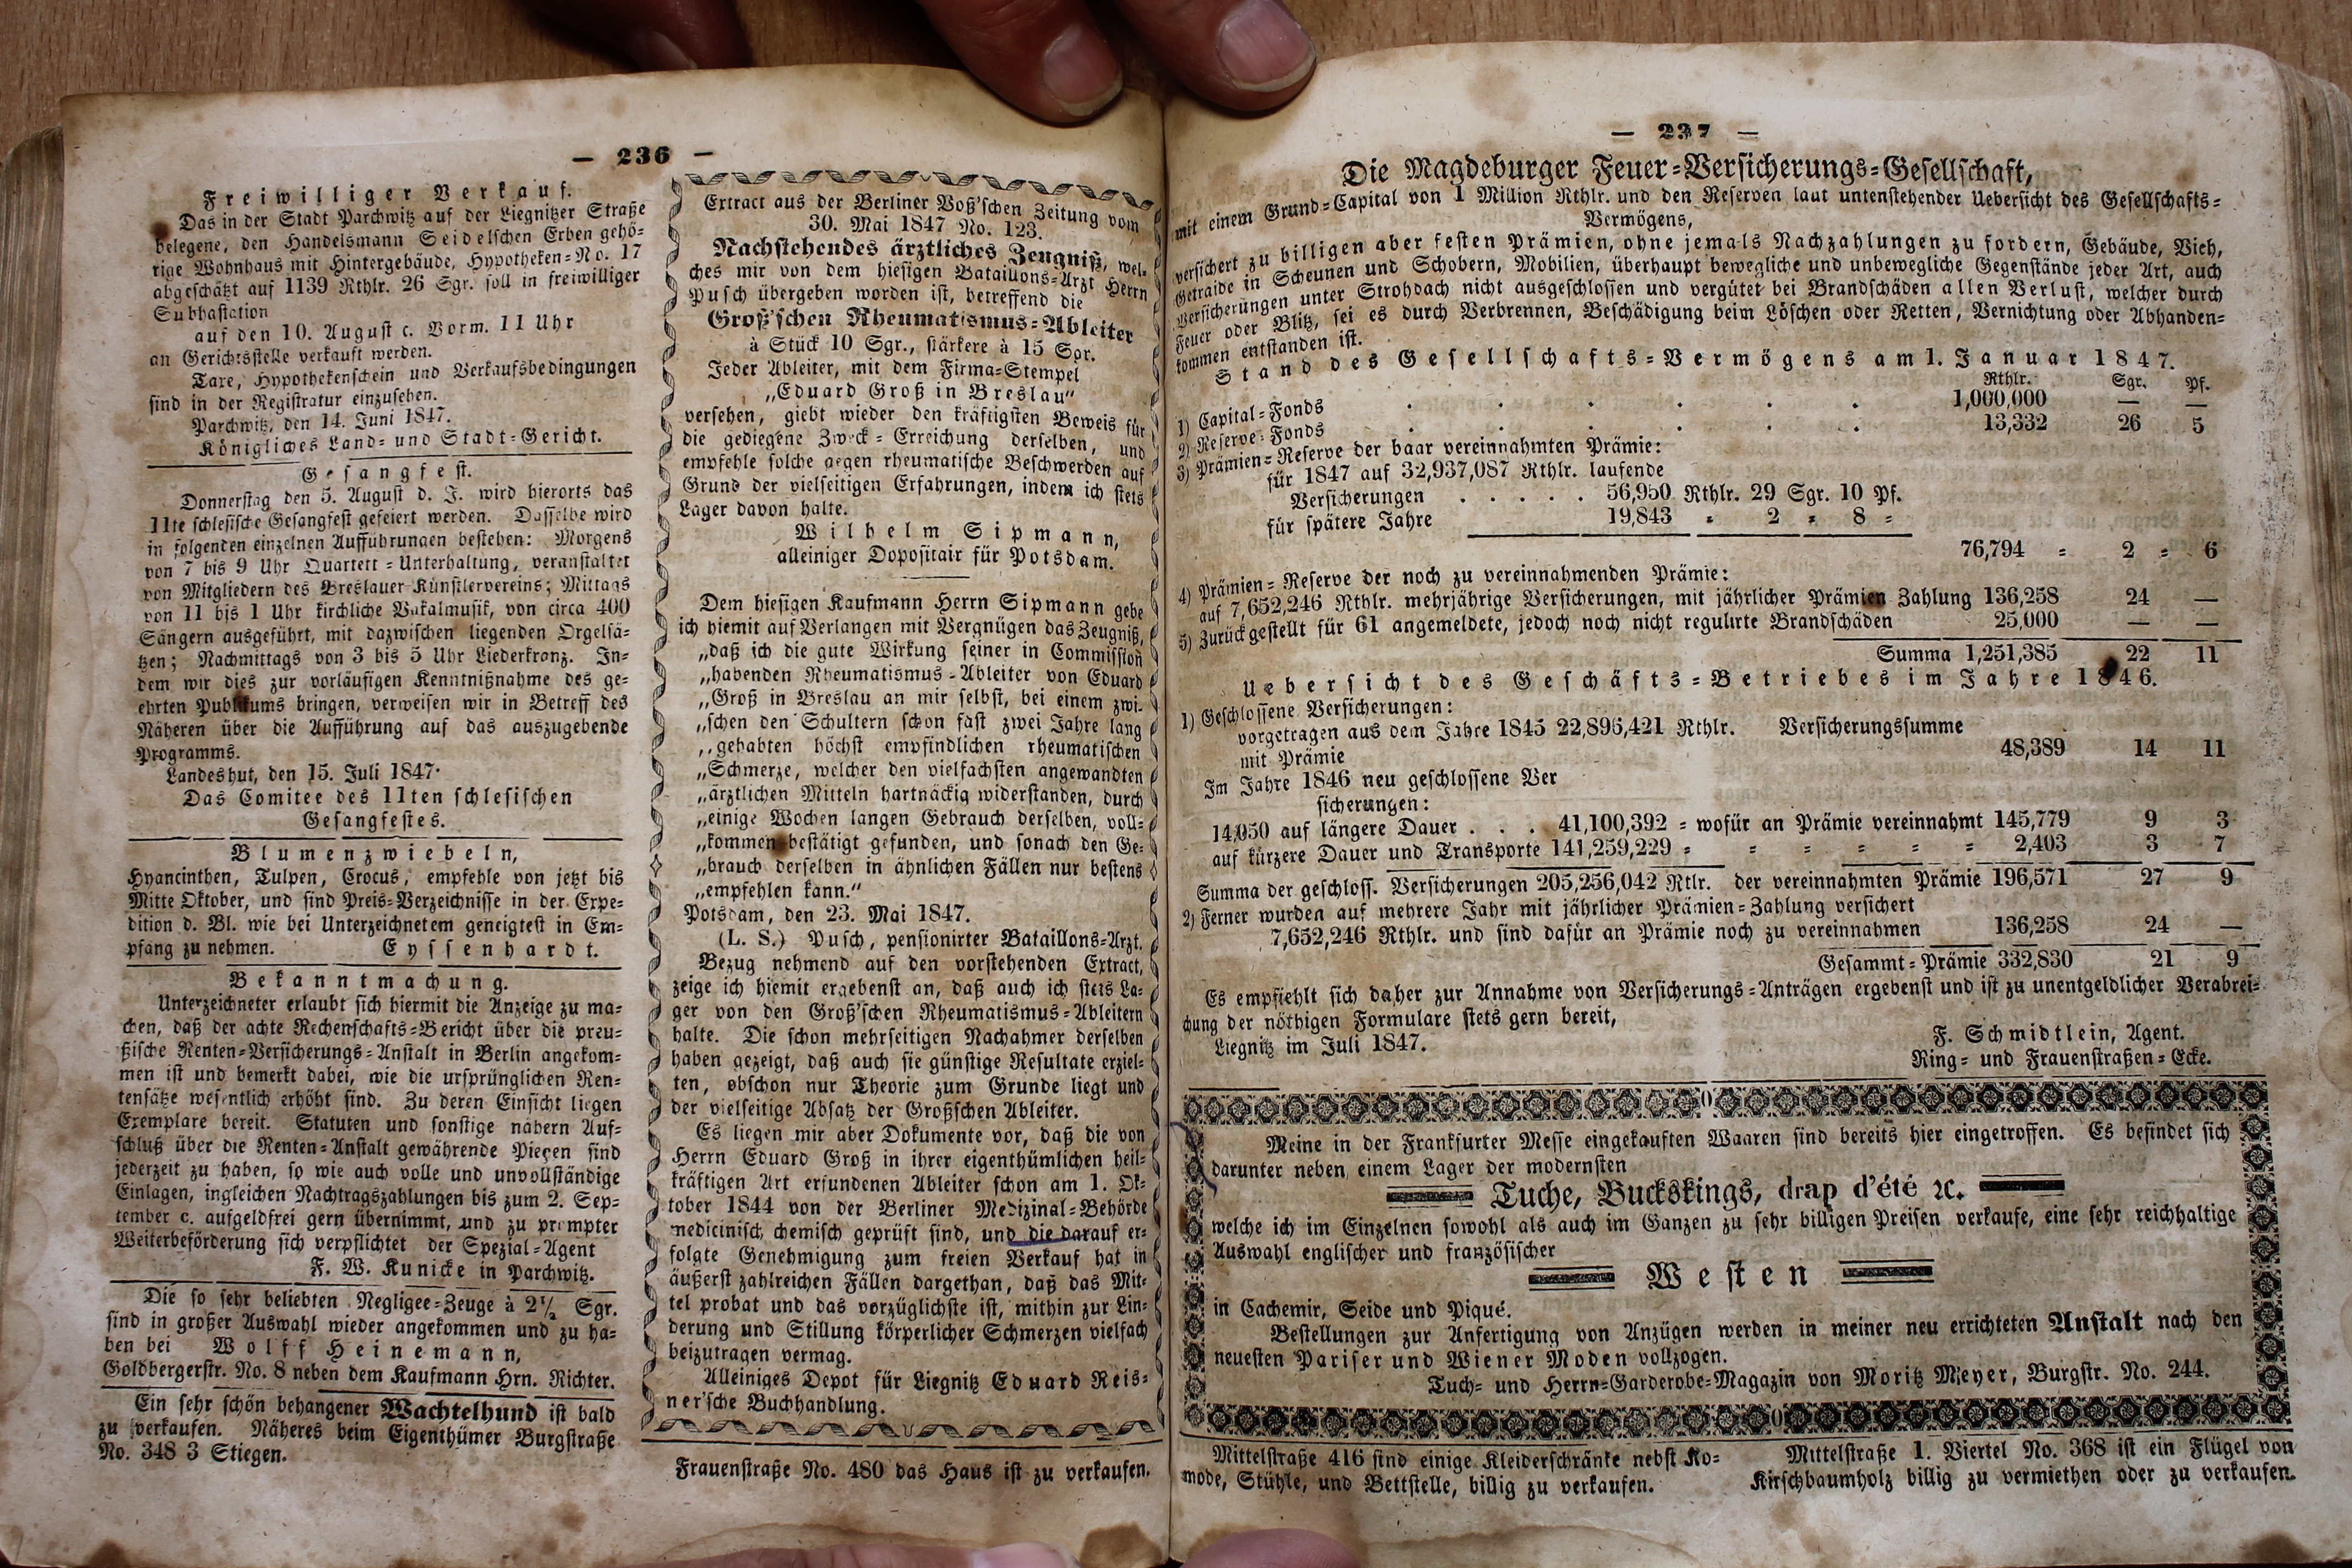 — 236 —
Freiwilliger Verkauf.
Das in der Stadt Parchwitz auf der Liegnitzer Straße
belegene, den Handelsmann Seidelschen Erben gehö-
rige Wohnhaus mit Hintergebäude, Hypotheken-No. 17
abgeschätzt auf 1139 Rthlr. 26 Sgr. soll in freiwilliger
Subhastation
auf den 10. August c. Vorm. 11 Uhr
an Gerichtsstelle verkauft werden.
Taxe, Hypothekenschein und Verkaufsbedingungen
sind in der Registratur einzusehen.
Parchwitz, den 14. Juni 1847.
Königliches Land- und Stadt-Gericht.
Gesangfest.
Donnerstag den 5. August d. J. wird hierorts das
11te schlesische Gesangfest gefeiert werden. Dasselbe wird
in folgenden einzelnen Aufführungen bestehen: Morgens
von 7 bis 9 Uhr Quartett-Unterhaltung, veranstaltet
von Mitgliedern des Breslauer Künstlervereins; Mittags
von 11 bis 1 Uhr kirchliche Vokalmusik, von circa 400
Sängern ausgeführt, mit dazwischen liegenden Orgelsä-
tzen; Nachmittags von 3 bis 5 Uhr Liederkranz. In-
dem wir dies zur vorläufigen Kenntnißnahme des ge-
ehrten Publikums bringen, verweisen wir in Betreff des
Näheren über die Aufführung auf das auszugebende
Programms.
Landeshut, den 15. Juli 1847.
Das Comitee des 11ten schlesischen
Gesangfestes.
Blumenzwiebeln,
Hyancinthen, Tulpen, Crocus, empfehle von jetzt bis
Mitte Oktober, und sind Preis-Verzeichnisse in der Expe-
dition d. Bl. wie bei Unterzeichnetem geneigtest in Em-
pfang zu nehmen. Eyssenhardt.
Bekanntmachung.
Unterzeichneter erlaubt sich hiermit die Anzeige zu ma-
chen, daß der achte Rechenschafts-Bericht über die preu-
ßische Renten-Versicherungs-Anstalt in Berlin angekom-
men ist und bemerkt dabei, wie die ursprünglichen Ren-
tensätze wesentlich erhöht sind. Zu deren Einsicht liegen
Exemplare bereit. Statuten und sonstige nähern Auf-
schluß über die Renten-Anstalt gewährende Pieçen sind
jederzeit zu haben, so wie auch volle und unvollständige
Einlagen, ingleichen Nachtragszahlungen bis zum 2. Sep-
tember c. aufgeldfrei gern übernimmt, und zu prompter
Weiterbeförderung sich verpflichtet der Spezial-Agent
F. W. Kunicke in Parchwitz.
Die so sehr beliebten Negligee-Zeuge à 2½ Sgr.
sind in großer Auswahl wieder angekommen und zu ha-
ben bei Wolff Heinemann,
Goldbergerstr. No. 8 neben dem Kaufmann Hrn. Richter.
Ein sehr schön behangener Wachtelhund ist bald
zu verkaufen. Näheres beim Eigenthümer Burgstraße
No. 348 3 Stiegen.
Extract aus der Berliner Voß'schen Zeitung vom
30. Mai 1847 No. 123.
Nachstehendes ärztliches Zeugniß, wel-
ches mir von dem hiesigen Bataillons-Arzt Herrn
Pusch übergeben worden ist, betreffend die
Groß'schen Rheumatismus-Ableiter
à Stück 10 Sgr., stärkere à 15 Sgr.
Jeder Ableiter, mit dem Firma-Stempel
„Eduard Groß in Breslau“
versehen, giebt wieder den kräftigsten Beweis für
die gediegene Zweck-Erreichung derselben, und
empfehle solche gegen rheumatische Beschwerden auf
Grund der vielseitigen Erfahrungen, indem ich stets
Lager davon halte.
Wilhelm Sipmann,
alleiniger Dopositair für Potsdam.
Dem hiesigen Kaufmann Herrn Sipmann gebe
ich hiemit auf Verlangen mit Vergnügen das Zeugniß,
„daß ich die gute Wirkung seiner in Commission
„habenden Rheumatismus-Ableiter von Eduard
„Groß in Breslau an mir selbst, bei einem zwi-
„schen den Schultern schon fast zwei Jahre lang
„gehabten höchst empfindlichen rheumatischen
„Schmerze, welcher den vielfachsten angewandten
„ärztlichen Mitteln hartnäckig widerstanden, durch
„einige Wochen langen Gebrauch derselben, voll-
„kommen bestätigt gefunden, und sonach den Ge-
„brauch derselben in ähnlichen Fällen nur bestens
„empfehlen kann.“
Potsdam, den 23. Mai 1847.
(L. S.) Pusch, pensionirter Bataillons-Arzt.
Bezug nehmend auf den vorstehenden Extract,
zeige ich hiemit ergebenst an, daß auch ich stets La-
ger von den Groß'schen Rheumatismus-Ableitern
halte. Die schon mehrseitigen Nachahmer derselben
haben gezeigt, daß auch sie günstige Resultate erziel-
ten, obschon nur Theorie zum Grunde liegt und
der vielseitige Absatz der Großschen Ableiter.
Es liegen mir aber Dokumente vor, daß die von
Herrn Eduard Groß in ihrer eigenthümlichen heil-
kräftigen Art erfundenen Ableiter schon am 1. Ok-
tober 1844 von der Berliner Medizinal-Behörde
medicinisch, chemisch geprüft sind, und die darauf er-
folgte Genehmigung zum freien Verkauf hat in
äußerst zahlreichen Fällen dargethan, daß das Mit-
tel probat und das vorzüglichste ist, mithin zur Lin-
derung und Stillung körperlicher Schmerzen vielfach
beizutragen vermag.
Alleiniges Depot für Liegnitz Eduard Reis-
ner'sche Buchhandlung.
Frauenstraße No. 480 das Haus ist zu verkaufen.
— 237 —
Die Magdeburger Feuer-Versicherungs-Gesellschaft,
mit einem Grund-Capital von 1 Million Rthlr. und den Reserven laut untenstehender Uebersicht des Gesellschafts-
Vermögens,
versichert zu billigen aber festen Prämien, ohne jemals Nachzahlungen zu fordern, Gebäude, Vieh,
Getraide in Scheunen und Schobern, Mobilien, überhaupt bewegliche und unbewegliche Gegenstände jeder Art, auch
Versicherungen unter Strohdach nicht ausgeschlossen und vergütet bei Brandschäden allen Verlust, welcher durch
Feuer oder Blitz, sei es durch Verbrennen, Beschädigung beim Löschen oder Retten, Vernichtung oder Abhanden-
kommen entstanden ist.
Stand des Gesellschafts-Vermögens am 1. Januar 1847.
Rthlr. Sgr. Pf.
1) Capital-Fonds . . . . . . 1,000,000 — —
2) Reserve-Fonds . . . . . . 13,332 26 5
3) Prämien-Reserve der baar vereinnahmten Prämie:
für 1847 auf 32,937,087 Rthlr. laufende
Versicherungen . . . . . 56,950 Rthlr. 29 Sgr. 10 Pf.
für spätere Jahre 19,843 = 2 = 8 =
76,794 = 2 = 6
4) Prämien-Reserve der noch zu vereinnahmenden Prämie:
auf 7,652,246 Rthlr. mehrjährige Versicherungen, mit jährlicher Prämien Zahlung 136,258 24 —
5) Zurückgestellt für 61 angemeldete, jedoch noch nicht regulirte Brandschäden 25,000 — —
Summa 1,251,385 22 11
Uebersicht des Geschäfts-Betriebes im Jahre 1846.
1) Geschlossene Versicherungen:
vorgetragen aus dem Jahre 1845 22,896,421 Rthlr. Versicherungssumme
mit Prämie 48,389 14 11
Im Jahre 1846 neu geschlossene Ver
sicherungen:
14,050 auf längere Dauer . . . 41,100,392 = wofür an Prämie vereinnahmt 145,779 9 3
auf kürzere Dauer und Transporte 141,259,229 = = = = = = 2,403 3 7
Summa der geschloss. Versicherungen 205,256,042 Rtlr. der vereinnahmten Prämie 196,571 27 9
2) Ferner wurden auf mehrere Jahr mit jährlicher Prämien-Zahlung versichert
7,652,246 Rthlr. und sind dafür an Prämie noch zu vereinnahmen 136,258 24 —
Gesammt-Prämie 332,830 21 9
Es empfiehlt sich daher zur Annahme von Versicherungs-Anträgen ergebenst und ist zu unentgeldlicher Verabrei-
chung der nöthigen Formulare stets gern bereit,
F. Schmidtlein, Agent.
Liegnitz im Juli 1847.
Ring- und Frauenstraßen-Ecke.
Meine in der Frankfurter Messe eingekauften Waaren sind bereits hier eingetroffen. Es befindet sich
darunter neben einem Lager der modernsten
Tuche, Buckskings, drap d'été ꝛc.
welche ich im Einzelnen sowohl als auch im Ganzen zu sehr billigen Preisen verkaufe, eine sehr reichhaltige
Auswahl englischer und französischer
Westen
in Cachemir, Seide und Piqué.
Bestellungen zur Anfertigung von Anzügen werden in meiner neu errichteten Anstalt nach den
neuesten Pariser und Wiener Moden vollzogen.
Tuch- und Herrn-Garderobe-Magazin von Moritz Meyer, Burgstr. No. 244.
Mittelstraße 416 sind einige Kleiderschränke nebst Ko-
mode, Stühle, und Bettstelle, billig zu verkaufen.
Mittelstraße 1. Viertel No. 368 ist ein Flügel von
Kirschbaumholz billig zu vermiethen oder zu verkaufen.